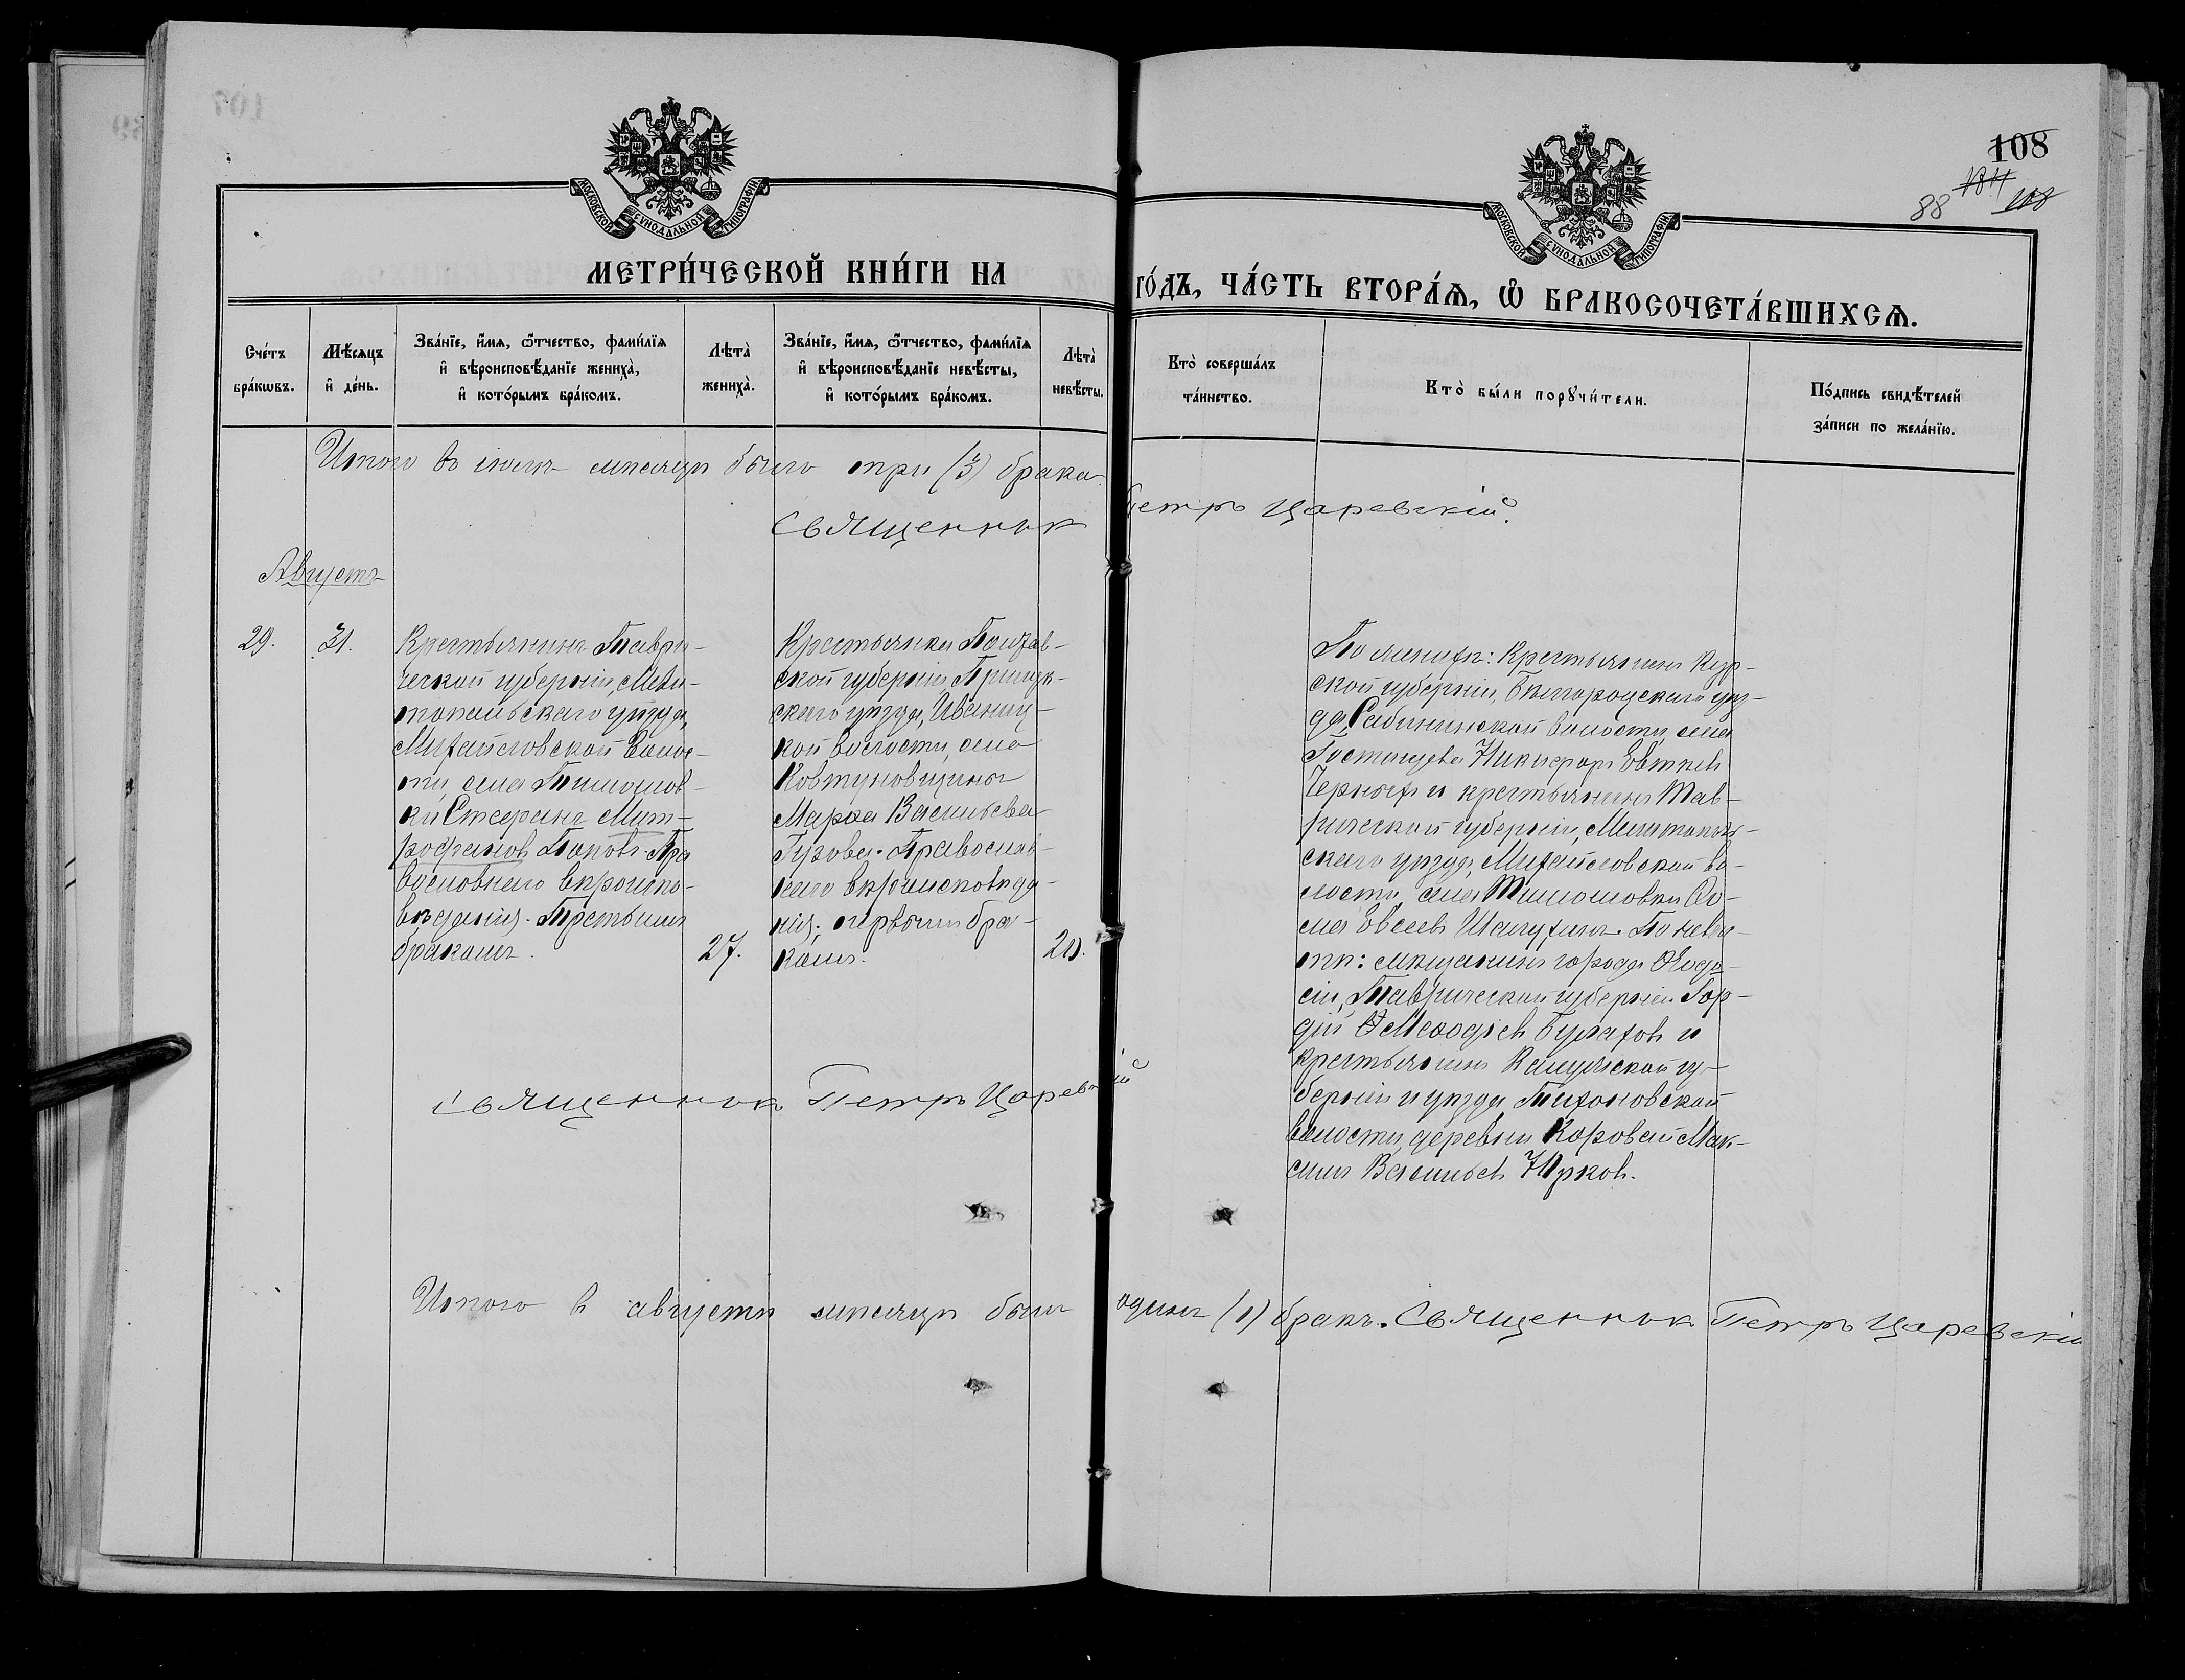 108
184
108
88
МОСКОВСКОЙ СУНОДАЛЬНОЙ ТИПОГРАФІИ
МОСКОВСКОЙ СУНОДАЛЬНОЙ ТИПОГРАФІИ
МЕТРИ́ЧЕСКОЙ КНИ́ГИ НА
ГО́ДЪ, ЧА́СТЬ ВТОРА́Я, Ѡ БРАКОСОЧЕТА́ВШИХСЯ.
Сче́тъ
бра́кѡвъ.
Мѣ́сяцъ
и҆ де́нь.
Зва́нїе, и҆́мя, ѻ҆́тчество, фами́лїя
и҆ вѣроисповѣ́данїе жениха̀,
и҆ кото́рымъ бра́комъ.
Лѣта̀
жениха̀.
Зва́нїе, и҆́мя, ѻ҆́тчество, фами́лїя
и҆ вѣроисповѣ́данїе невѣ́сты,
и҆ кото́рымъ бра́комъ.
Лѣта̀
невѣ́сты.
Кто̀ соверша́лъ
та́инство.
Кто̀ бы́ли порꙋчи́тели.
По́дпись свидѣ́телей
за́писи по жела́нїю.
Итого въ іюлѣ мѣсяцѣ было три (3) брака.
Священникъ Петръ Царевскій.
Августъ
29.
31.
Крестьянинъ Таври-
ческой губерніи, Мели-
топольскаго уѣзда,
Михайловской волос-
ти, села Тимошов-
ки Стефанъ Мит-
рофановъ Поповъ. Пра
вославнаго вѣроиспо-
вѣданія. Третьимъ
бракомъ.
27.
Крестьянка Полтав-
ской губерніи Прилук-
скаго уѣзда, Иваниц-
кой волости, села
Ковтуновщины
Марѳа Васильева
Гузова. Православ-
наго вѣроисповѣда-
нія; первымъ бра-
комъ.
20.
По женихѣ: крестьянинъ Кур-
ской губерніи, Бѣлгородскаго уѣз-
да, Сабининской волости, села
Гостищева Никифоръ Евтѣевъ
Черныхъ и крестьянинъ Тав-
рической губерніи, Мелитополь-
скаго уѣзда, Михайловской во-
лости, села Тимошовки Ѳо-
ма Евсеевъ Шалухинъ. По невѣс-
тѣ: мѣщанинъ города Ѳеодо-
сіи, Таврической губерніи Гор-
дій Меѳодіевъ Булатовъ и
крестьянинъ Калужской гу-
берніи и уѣзда, Тихоновской
волости, деревни Коровай Мак-
симъ Васильевъ Юрковъ.
Священникъ Петръ Царевскій
Итого въ августѣ мѣсяцѣ былъ одинъ (1) бракъ. Священникъ Петръ Царевскій